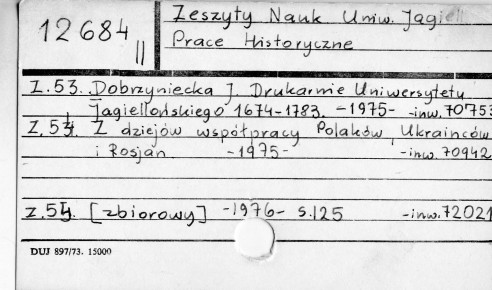 12684
II
Zeszyty Nauk Uniw. Jagiell
Prace Historyczne
Z. 53. Dobrzyniecka J. Drukarnie Uniwersytetu
Jagiellońskiego 1674-1783. -1975- -inw. 70753
Z. 54. Z dziejów współpracy Polaków, Ukraińców
i Rosjan -1975- -inw. 70942
Z. 54. [zbiorowy] -1976- s. 125 -inw. 72021
DUJ 897/73. 15000